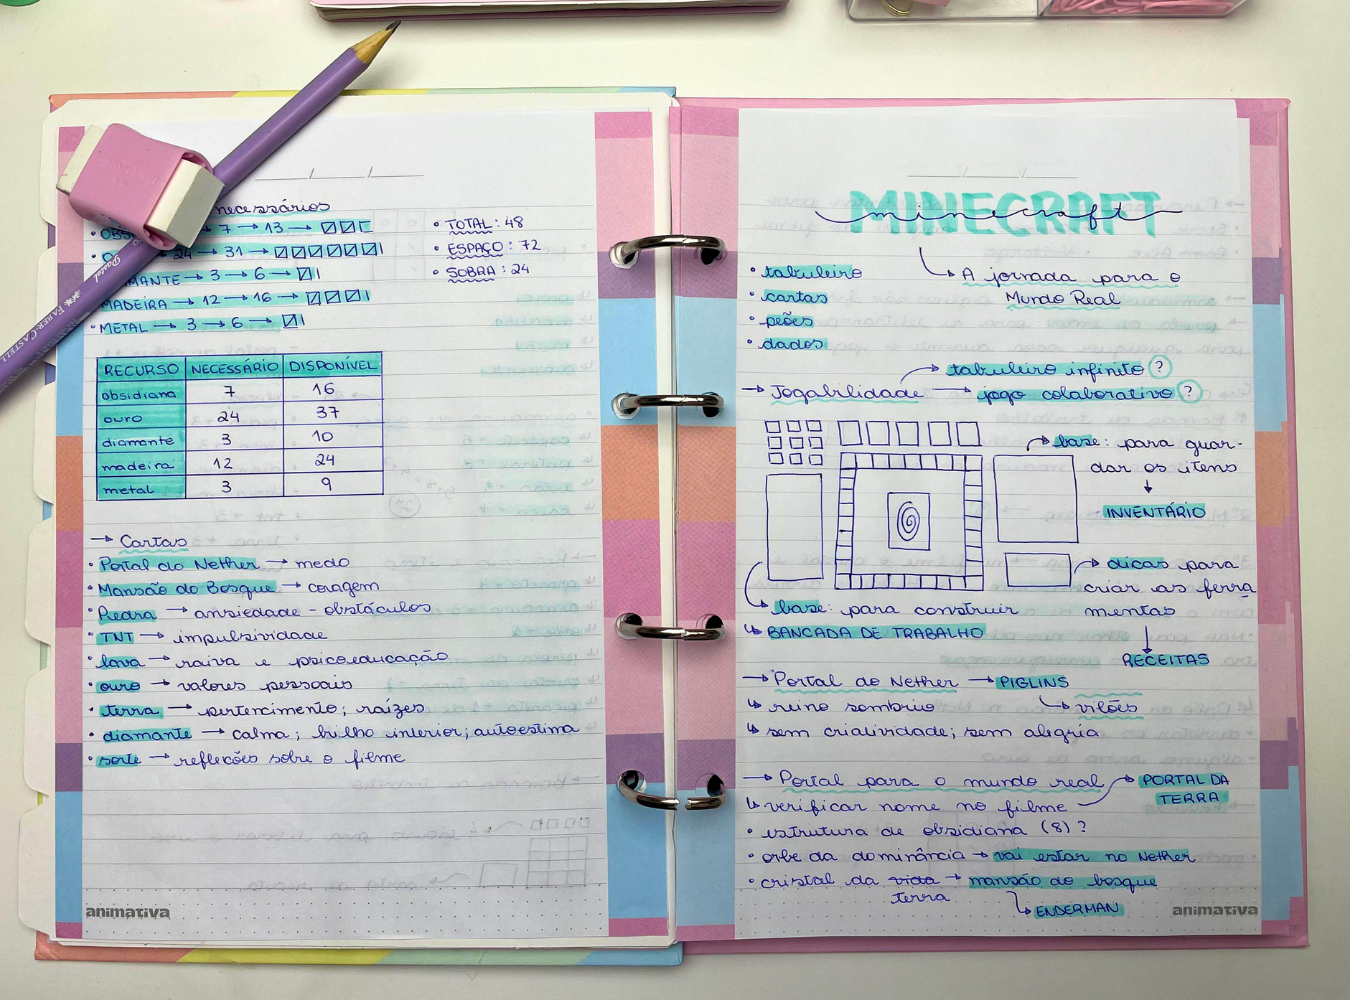 necessários
7 → 13 →
24 → 31 →
MANTE → 3 → 6 →
MADEIRA → 12 → 16 →
• METAL → 3 → 6 →
• TOTAL: 48
• ESPAÇO: 72
• SOBRA: 24
RECURSO NECESSÁRIO DISPONÍVEL
obsidiana 7 16
ouro 24 37
diamante 3 10
madeira 12 24
metal 3 9
→ Cartas
• Portal do Nether → medo
• Mansão do Bosque → coragem
• Pedra → ansiedade - obstáculos
• TNT → impulsividade
• lava → raiva e psicoeducação
• ouro → valores pessoais
• terra → pertencimento; raízes
• diamante → calma; brilho interior; autoestima
• sorte → reflecões sobre o filme
animativa
MINECRAFT
minecraft
A jornada para o
Mundo Real
• tabuleiro
• cartas
• peões
• dados
→ Jogabilidade → tabuleiro infinito?
→ jogo colaborativo?
base: para guar-
dar os itens
↓
INVENTÁRIO
→ dicas para
criar as ferra
mentas
↓
RECEITAS
base: para construir
↳ BANCADA DE TRABALHO
→ Portal do Nether → PIGLINS
↳ vilões
↳ reino sombrio
↳ sem criatividade; sem alegria
→ Portal para o mundo real
↳ verificar nome no filme → PORTAL DA
TERRA
• estrutura de obsidiana (8)?
• orbe da dominância → vai estar no Nether
• cristal da vida → mansão do bosque
terra
↳ ENDERMAN
animativa
FABER-CASTELL